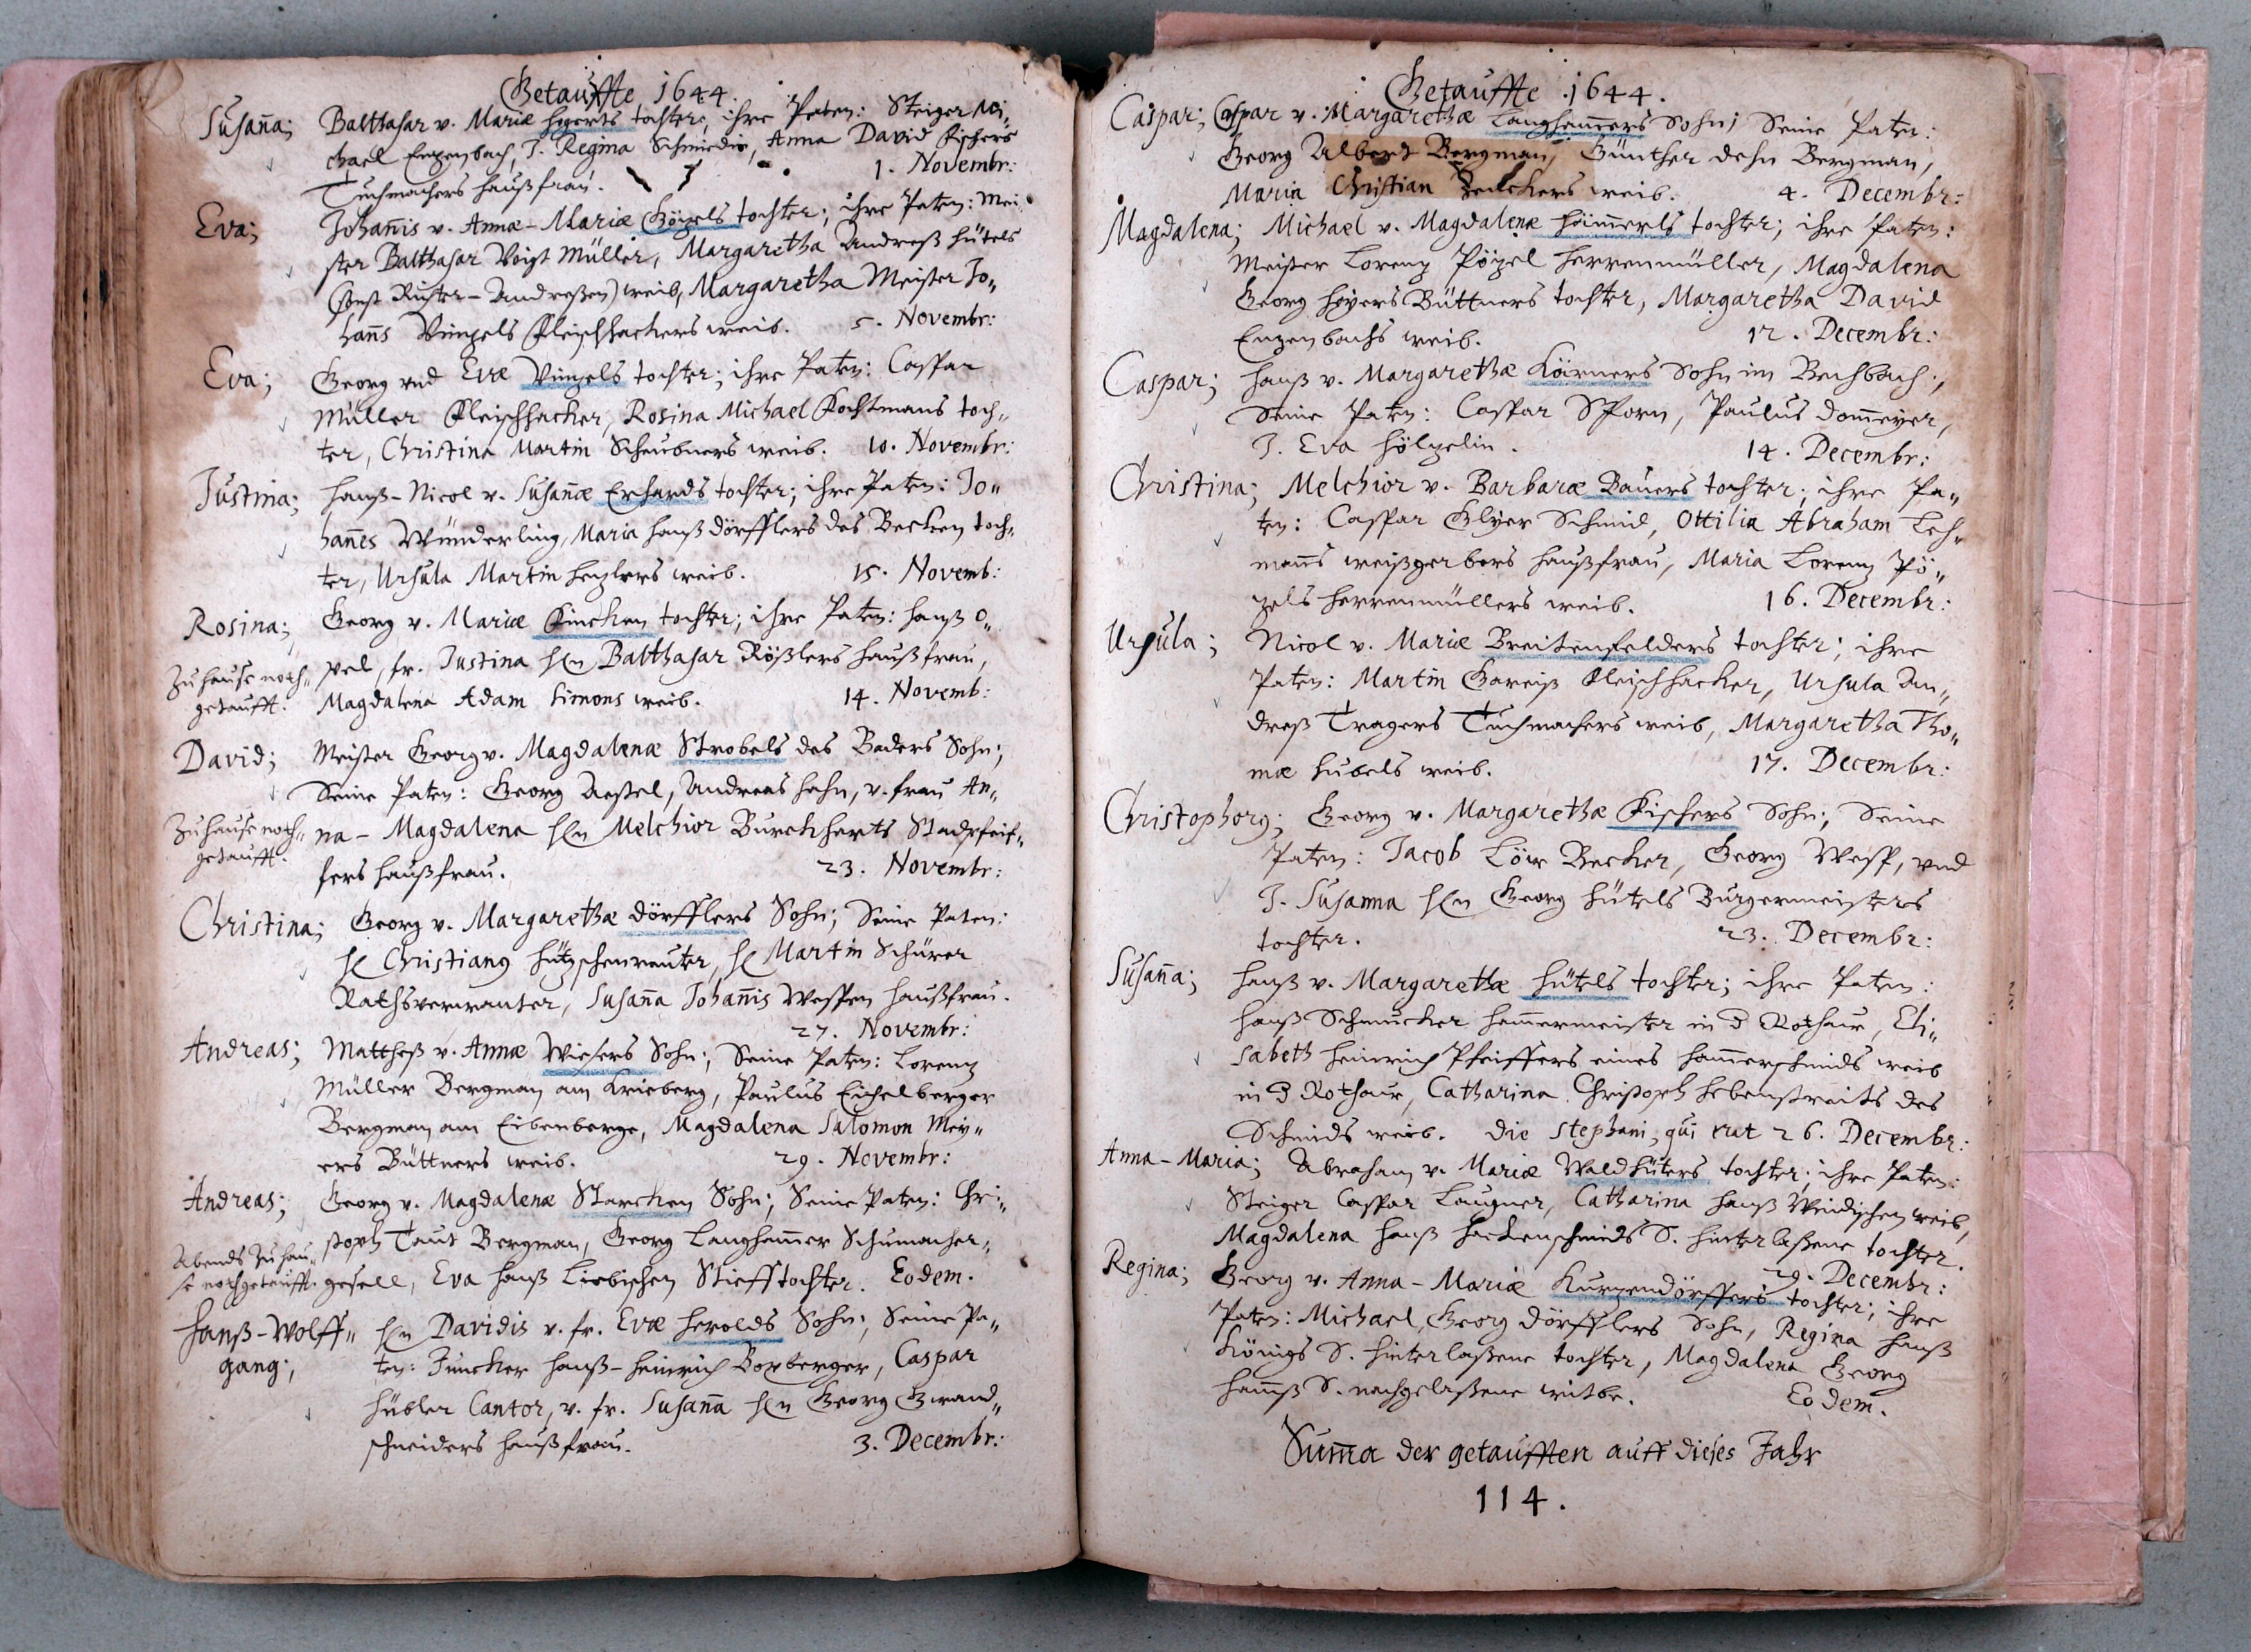 Getauffte 1644.
Susan̄a; Balthasar v. Mariæ tochter, ihre Paten: Steiger Mi-
chael Enzenbach, J. Regina Schmiedin, Anna David Fischers
Tuchmachers haußfrau. 1. Novembr:
Eva; Johan̄is v. Annæ-Mariæ Götzels tochter; ihre Paten: Mei-
ster Balthasar Voigt Müller, Margaretha Andreß Hütels
(sonst Richter-Andreßen) weib, Margaretha Meister Jo-
han̄s Vinzels Fleischhackers weib. 5. Novembr:
Eva; Georg vnd Evæ Vinzels tochter; ihre Paten: Caspar
Müller Fleischhacker, Rosina Michael Kochtmans toch-
ter, Christina Martin Scheubners weib. 10. Novembr:
Justina; Hanß-Nicol v. Susan̄æ Erhards tochter; ihre Paten: Jo-
han̄es Wunderling, Maria Hanß Dörfflers des Becken toch-
ter, Ursula Martin weib. 15. Novemb:
Rosina; Georg v. Mariæ Fincken tochter; ihre Paten: Hanß O-
pel, fr. Justina Hℓn Balthasar Rößlers haußfrau,
Zu hause noth-
getaufft.
Magdalena Adam Simons weib. 14. Novemb:
David; Meister Georg v. Magdalenæ Strobels des Baders Sohn;
Seine Paten: Georg Andreas Hahn, v. frau An-
Zu hause noth-
getaufft.
na-Magdalena Hℓn Melchior Burckherts Stadpfeif-
fers haußfrau. 23. Novembr:
Christina; Georg v. Margarethæ Dörfflers Sohn; Seine Paten:
Hℓ Christianus Hützschenreuter, Hℓ Martin Schürer
Rathsverwanter, Susan̄a Johan̄is Wespen haußfrau.
27. Novembr:
Andreas; Mattheß v. Annæ Wiesers Sohn; Seine Paten: Lorenz
Müller Bergman am Paulus Eichelberger
Bergman am Eibenberge, Magdalena Salomon Mey-
ers Büttners weib. 29. Novembr:
Andreas; Georg v. Magdalenæ Starcken Sohn; Seine Paten: Chri-
stoph Taut Bergman, Georg Langham̄er Schumacher-
Abends zu hau-
se nothgetaufft.
gesell, Eva Hanß Liebischen Stieftochter. Eodem.
Hanß-Wolff-
gang;
Hℓn Davidis v. fr. Evæ Herolds Sohn; Seine Pa-
ten: Juncker Hanß-Heinrich Boxberger, Caspar
Hübler Cantor, v. fr. Susan̄a Hℓn Georg Gwand-
schneiders haußfrau. 3. Decembr:
Getauffte 1644.
Caspar; Caspar v. Margarethæ Langham̄ers Sohn; Seine Paten:
Georg Albert Bergman, Günther Dehn Bergman,
Maria Christian weib. 4. Decembr:
Magdalena; Michael v. Magdalenæ Häm̄erls tochter; ihre Paten:
Meister Lorenz Pözel Herrenmüller, Magdalena
Georg Höyers Büttners tochter, Margaretha David
Enzenbachs weib. 12. Decembr:
Caspar; Hanß v. Margarethæ Körners Sohn im Bechbach;
Seine Paten: Caspar Sporn, Paulus Dom̄eyer,
J. Eva Hölzelin. 14. Decembr:
Christina; Melchior v. Barbaræ Bauers tochter; ihre Pa-
ten: Caspar Glyer Schmid, Ottilia Abraham Leh-
man̄s weißgerbers haußfrau, Maria Lorenz Pö-
zels Herrenmüllers weib. 16. Decembr:
Ursula; Nicol v. Mariæ Breitenfelders tochter; ihre
Paten: Martin Gareiß Fleischhacker, Ursula An-
dreß Tragers Tuchmachers weib, Margaretha Tho-
mæ Hubels weib. 17. Decembr:
Christophorus; Georg v. Margarethæ Fischers Sohn; Seine
Paten: Jacob Löw Becker, Georg Wesp, vnd
J. Susanna Hℓn Georg Hütels Burgermeisters
tochter. 23. Decembr:
Susan̄a; Hanß v. Margarethæ Hütels tochter; ihre Paten:
Hanß Schmucker Ham̄ermeister in d Rothaw, Eli-
sabeth Heinrich Pfeiffers eines Ham̄erschmids weib
in d Rothaw, Catharina Christoph Hebenstreits des
Schmids weib. Die Stephani, qui erat 26. Decembr:
Anna-Maria; Abraham v. Mariæ Waldhüters tochter; ihre Paten:
Steiger Caspar Laugner, Catharina Hanß Windischen weib,
Magdalena Hanß Heckenschmids S. hinterlaßene tochter.
29. Decembr:
Regina; Georg v. Anna-Mariæ Kurzendörffers tochter; ihre
Paten: Michael, Georg Dörfflers Sohn, Regina Hanß
Königs S. hinterlaßene tochter, Magdalena Georg
S. nachgelaßene witbe. Eodem.
Sum̄a der getaufften auff dieses Jahr
114.